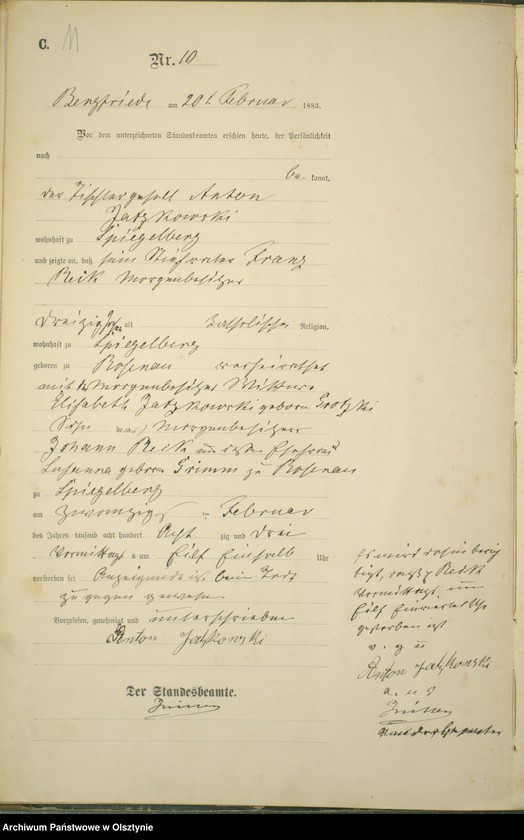 C. 11
Nr. 10
Bergfriede am 20t Februar 1883.
Vor dem unterzeichneten Standesbeamten erschien heute, der Persönlichkeit
nach
be kannt,
der Tischlergesell Anton
Jatzkowski
wohnhaft zu Spiegelberg
und zeigte an, daß sein Stiefvater Franz
Reik Morgenbesitzer
dreizig Jahr alt katholischer Religion,
wohnhaft zu Spiegelberg
geboren zu Rosenau verheirathet
mit Morgenbesitzer Wittwe
Elisabeth Jatzkowski geborn Grotzki
Sohn Morgenbesitzers
Johann Reik und dessen Ehefrau
Susanna geborn Grimm zu Rosenau
zu Spiegelberg
am zwanzig ten Februar
des Jahres tausend acht hundert Acht zig und drei
Vormittags um Eilf Einhalb Uhr
verstorben sei Anzeigende ist beim Tode
zu gegen gewesen
Vorgelesen, genehmigt und unterschrieben
Anton Jatzkowski
Der Standesbeamte.
Es wird dahin berich
tigt, daß p Reik
Vormittags um
Eilf Einviertel Uhr
gestorben ist
v. g u
Anton Jatzkowski
a. u s
Archiwum Państwowe w Olsztynie